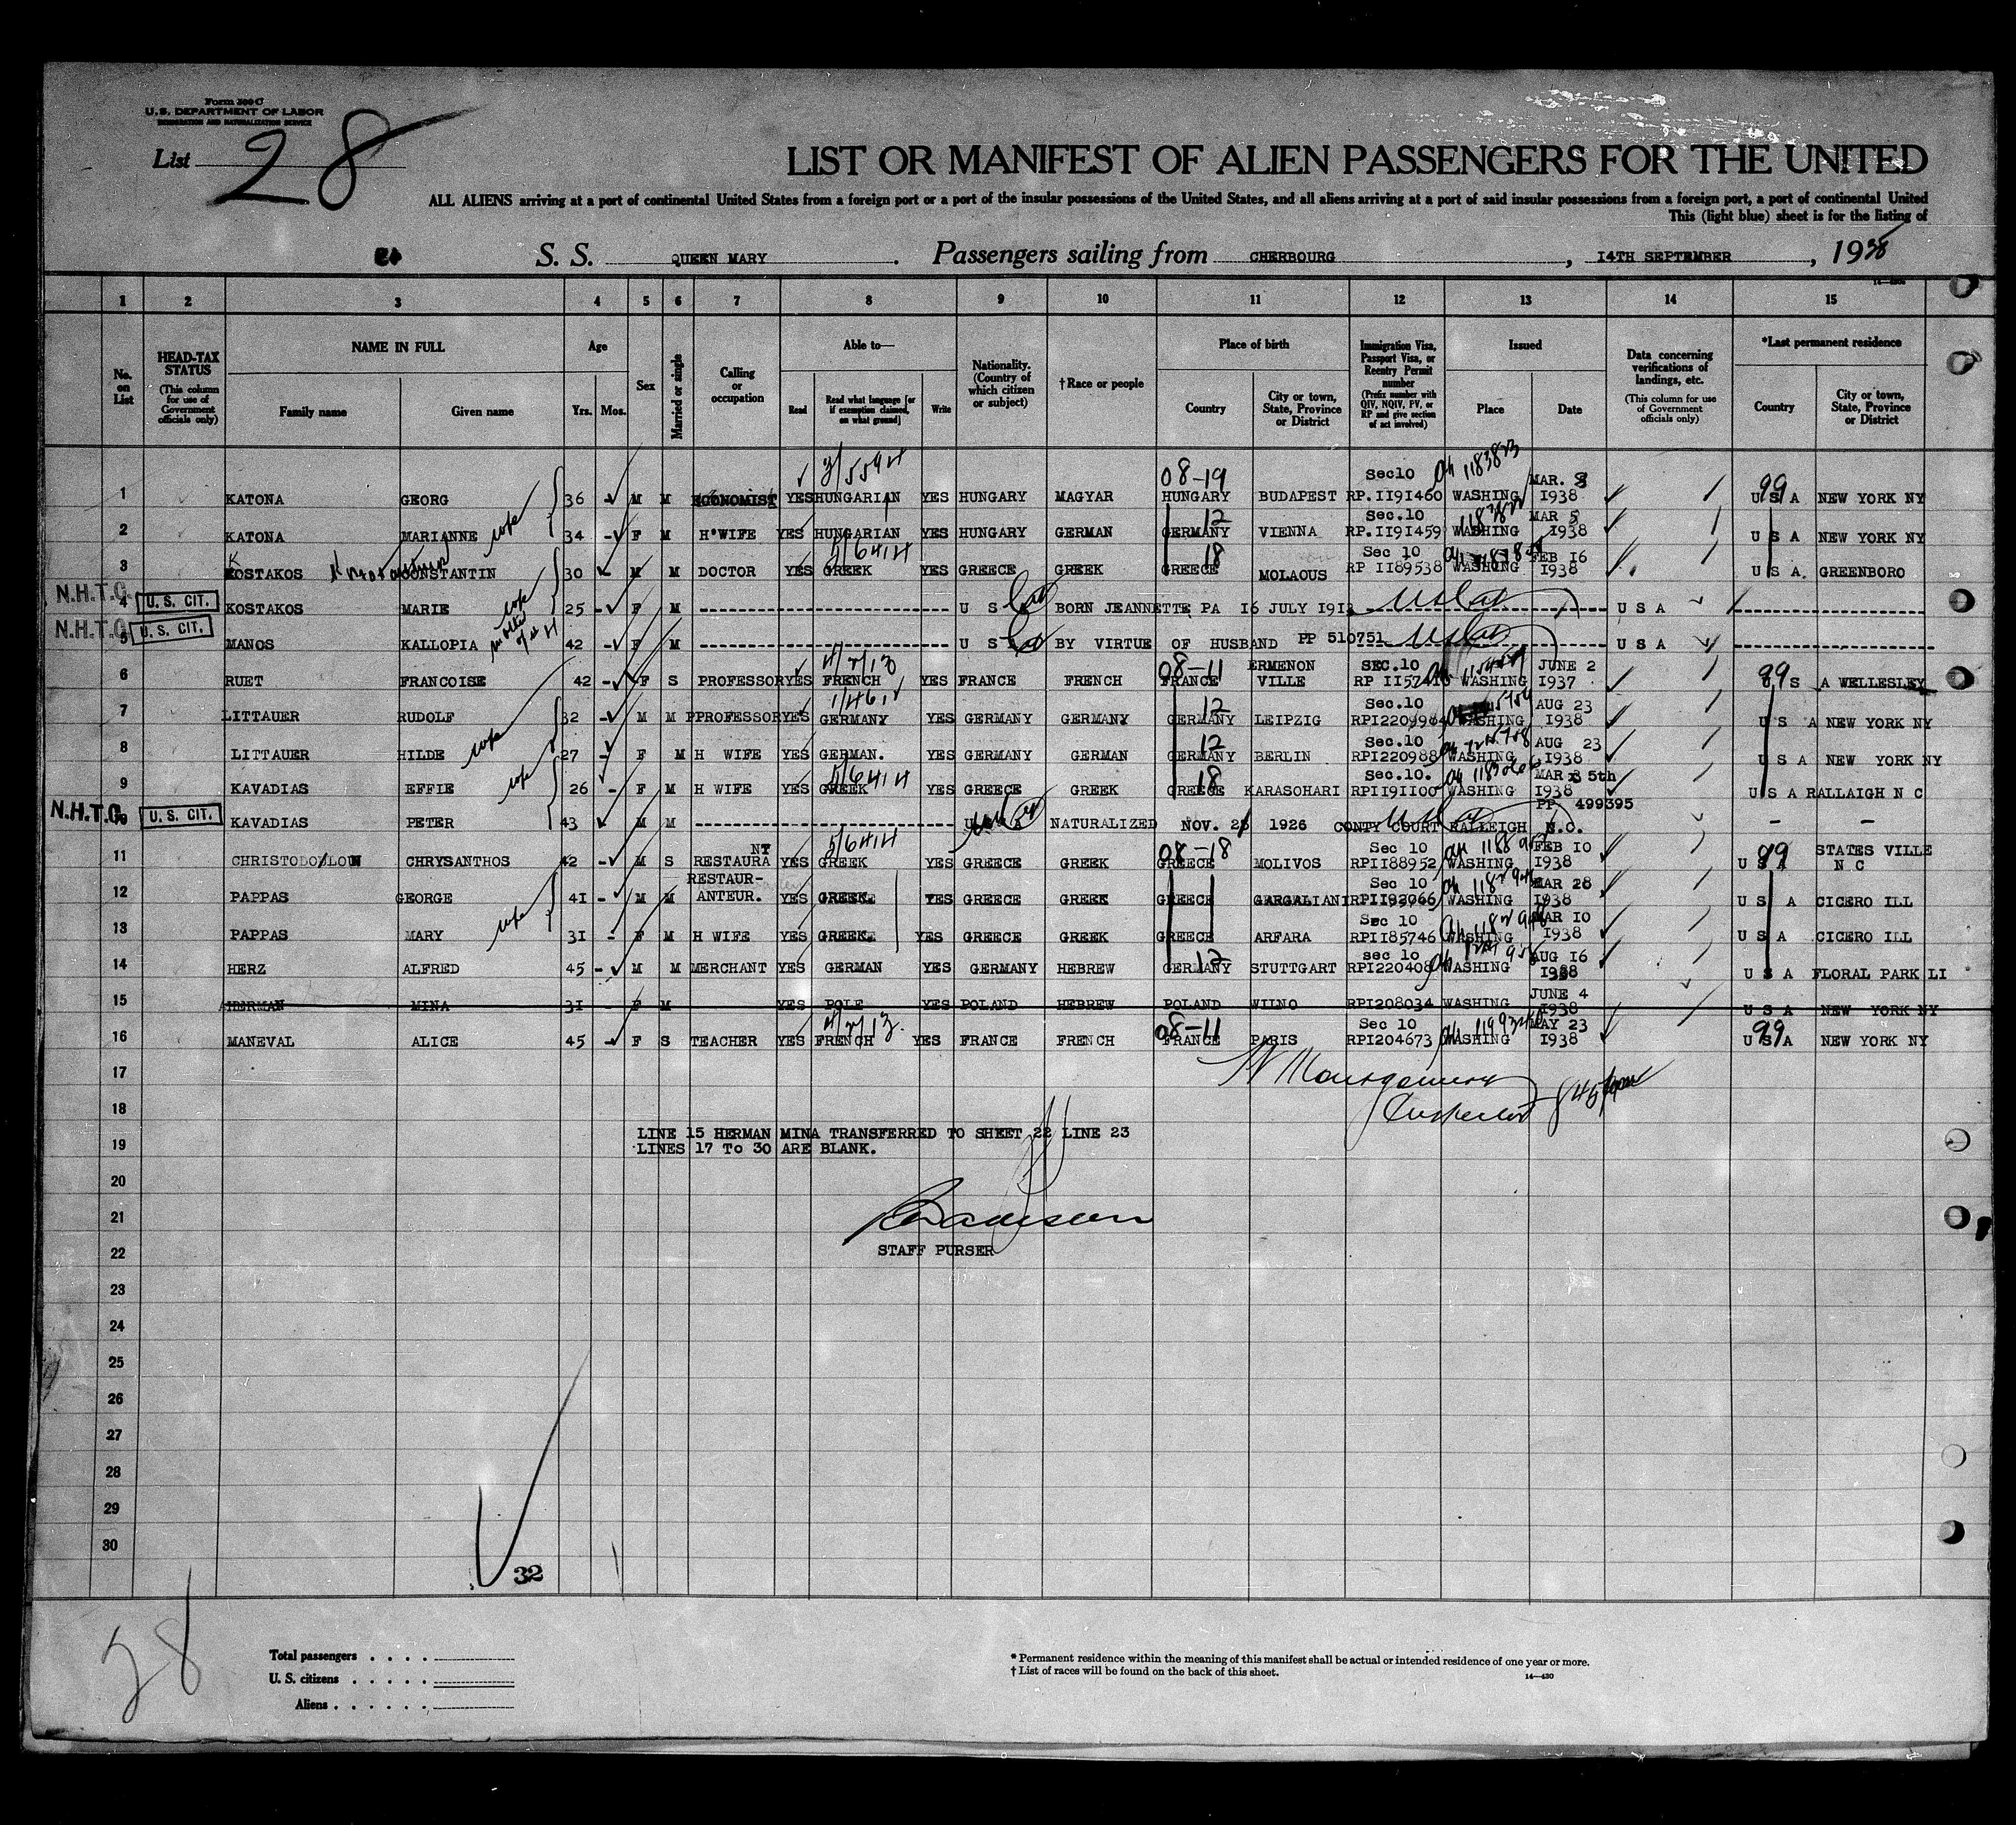 Form 500 C
U.S. DEPARTMENT OF LABOR
IMMIGRATION AND NATURALIZATION SERVICE
List 28
LIST OR MANIFEST OF ALIEN PASSENGERS FOR THE UNITED
ALL ALIENS arriving at a port of continental United States from a foreign port or a port of the insular possessions of the United States, and all aliens arriving at a port of said insular possessions from a foreign port, a port of continental United
This (light blue) sheet is for the listing of
S. S. QUEEN MARY. Passengers sailing from CHERBOURG, 14TH SEPTEMBER, 1938
1 2 3 4 5 6 7 8 9 10 11 12 13 14 15
No. on List
HEAD-TAX STATUS (This column for use of Government officials only)
NAME IN FULL Family name Given name
Age Yrs. Mos.
Sex
Married or single
Calling or occupation
Able to— Read Read what language [or if exemption claimed, on what ground] Write
Nationality. (Country of which citizen or subject)
†Race or people
Place of birth Country City or town, State, Province or District
Immigration Visa, Passport Visa, or Reentry Permit number (Prefix number with QIV, NQIV, PV, or RP and give section of act involved)
Issued Place Date
Data concerning verifications of landings, etc. (This column for use of Government officials only)
*Last permanent residence Country City or town, State, Province or District
1 KATONA GEORG 36 - M M ECONOMIST YES HUNGARIAN YES HUNGARY MAGYAR 08-19 HUNGARY BUDAPEST Sec10 RP.1191460 WASHING MAR. 8 1938 99 U S A NEW YORK NY
2 KATONA MARIANNE wife 34 - F M H*WIFE YES HUNGARIAN YES HUNGARY GERMAN 12 GERMANY VIENNA Sec.10 RP.1191459 WASHING MAR 5 1938 U S A NEW YORK NY
3 KOSTAKOS CONSTANTIN 30 - M M DOCTOR YES GREEK YES GREECE GREEK 18 GREECE MOLAOUS Sec 10 RP 1189538 WASHING FEB 16 1938 U S A. GREENBORO
N.H.T.C. 4 U. S. CIT. KOSTAKOS MARIE wife 25 - F M U S BORN JEANNETTE PA 16 JULY 1912 U S A
N.H.T.C. 5 U. S. CIT. MANOS KALLOPIA mother of #4 42 - F M U S BY VIRTUE OF HUSBAND PP 510751 U S A
6 RUET FRANCOISE 42 - F S PROFESSOR YES FRENCH YES FRANCE FRENCH 08-11 FRANCE ERMENON VILLE SEC.10 WASHING JUNE 2 1937 99 U S A WELLESLEY
7 LITTAUER RUDOLF 32 - M M PPROFESSOR YES GERMANY YES GERMANY GERMANY 12 GERMANY LEIPZIG Sec.10 RP1220996 WASHING AUG 23 1938 U S A NEW YORK NY
8 LITTAUER HILDE wife 27 - F M H WIFE YES GERMAN. YES GERMANY GERMAN 12 GERMANY BERLIN Sec.10 RP1220988 WASHING AUG 23 1938 U S A NEW YORK NY
9 KAVADIAS EFFIE wife 26 - F M H WIFE YES GREEK YES GREECE GREEK 18 GREECE KARASOHARI Sec.10. RP1191100 WASHING MAR 5th 1938 U S A RALLAIGH N C
N.H.T.C. 10 U. S. CIT. KAVADIAS PETER 43 M M NATURALIZED NOV. 26 1926 CONTY COURT RALLEIGH N.C. PP. 499395 - -
11 CHRISTODOULOU CHRYSANTHOS 42 - M S RESTAURA NT YES GREEK YES GREECE GREEK 08-18 GREECE MOLIVOS Sec 10 RP1188952 WASHING FEB 10 1938 99 U S A STATES VILLE N C
12 PAPPAS GEORGE 41 - M M RESTAUR-ANTEUR. YES GREEK YES GREECE GREEK GREECE GARGALIANI Sec 10 RP1192066 WASHING MAR 28 1938 U S A CICERO ILL
13 PAPPAS MARY wife 31 - F M H WIFE YES GREEK YES GREECE GREEK GREECE ARFARA Sec 10 RP1185746 WASHING MAR 10 1938 U S A CICERO ILL
14 HERZ ALFRED 45 - M M MERCHANT YES GERMAN YES GERMANY HEBREW 12 GERMANY STUTTGART sec 10 RP1220408 WASHING AUG 16 1938 U S A FLORAL PARK LI
15 HERMAN MINA 31 - F M YES POLE YES POLAND HEBREW POLAND WILNO RP1208034 WASHING JUNE 4 1938 U S A NEW YORK NY
16 MANEVAL ALICE 45 - F S TEACHER YES FRENCH YES FRANCE FRENCH 08-11 FRANCE PARIS Sec 10 RP1204673 WASHING MAY 23 1938 99 U S A NEW YORK NY
17
18
LINE 15 HERMAN MINA TRANSFERRED TO SHEET 22 LINE 23
19 LINES 17 To 30 ARE BLANK.
20
21
22 STAFF PURSER
23
24
25
26
27
28
29
30
32
28
Total passengers . . . .
U. S. citizens . . . . .
Aliens . . . . . .
* Permanent residence within the meaning of this manifest shall be actual or intended residence of one year or more.
† List of races will be found on the back of this sheet.
14—430